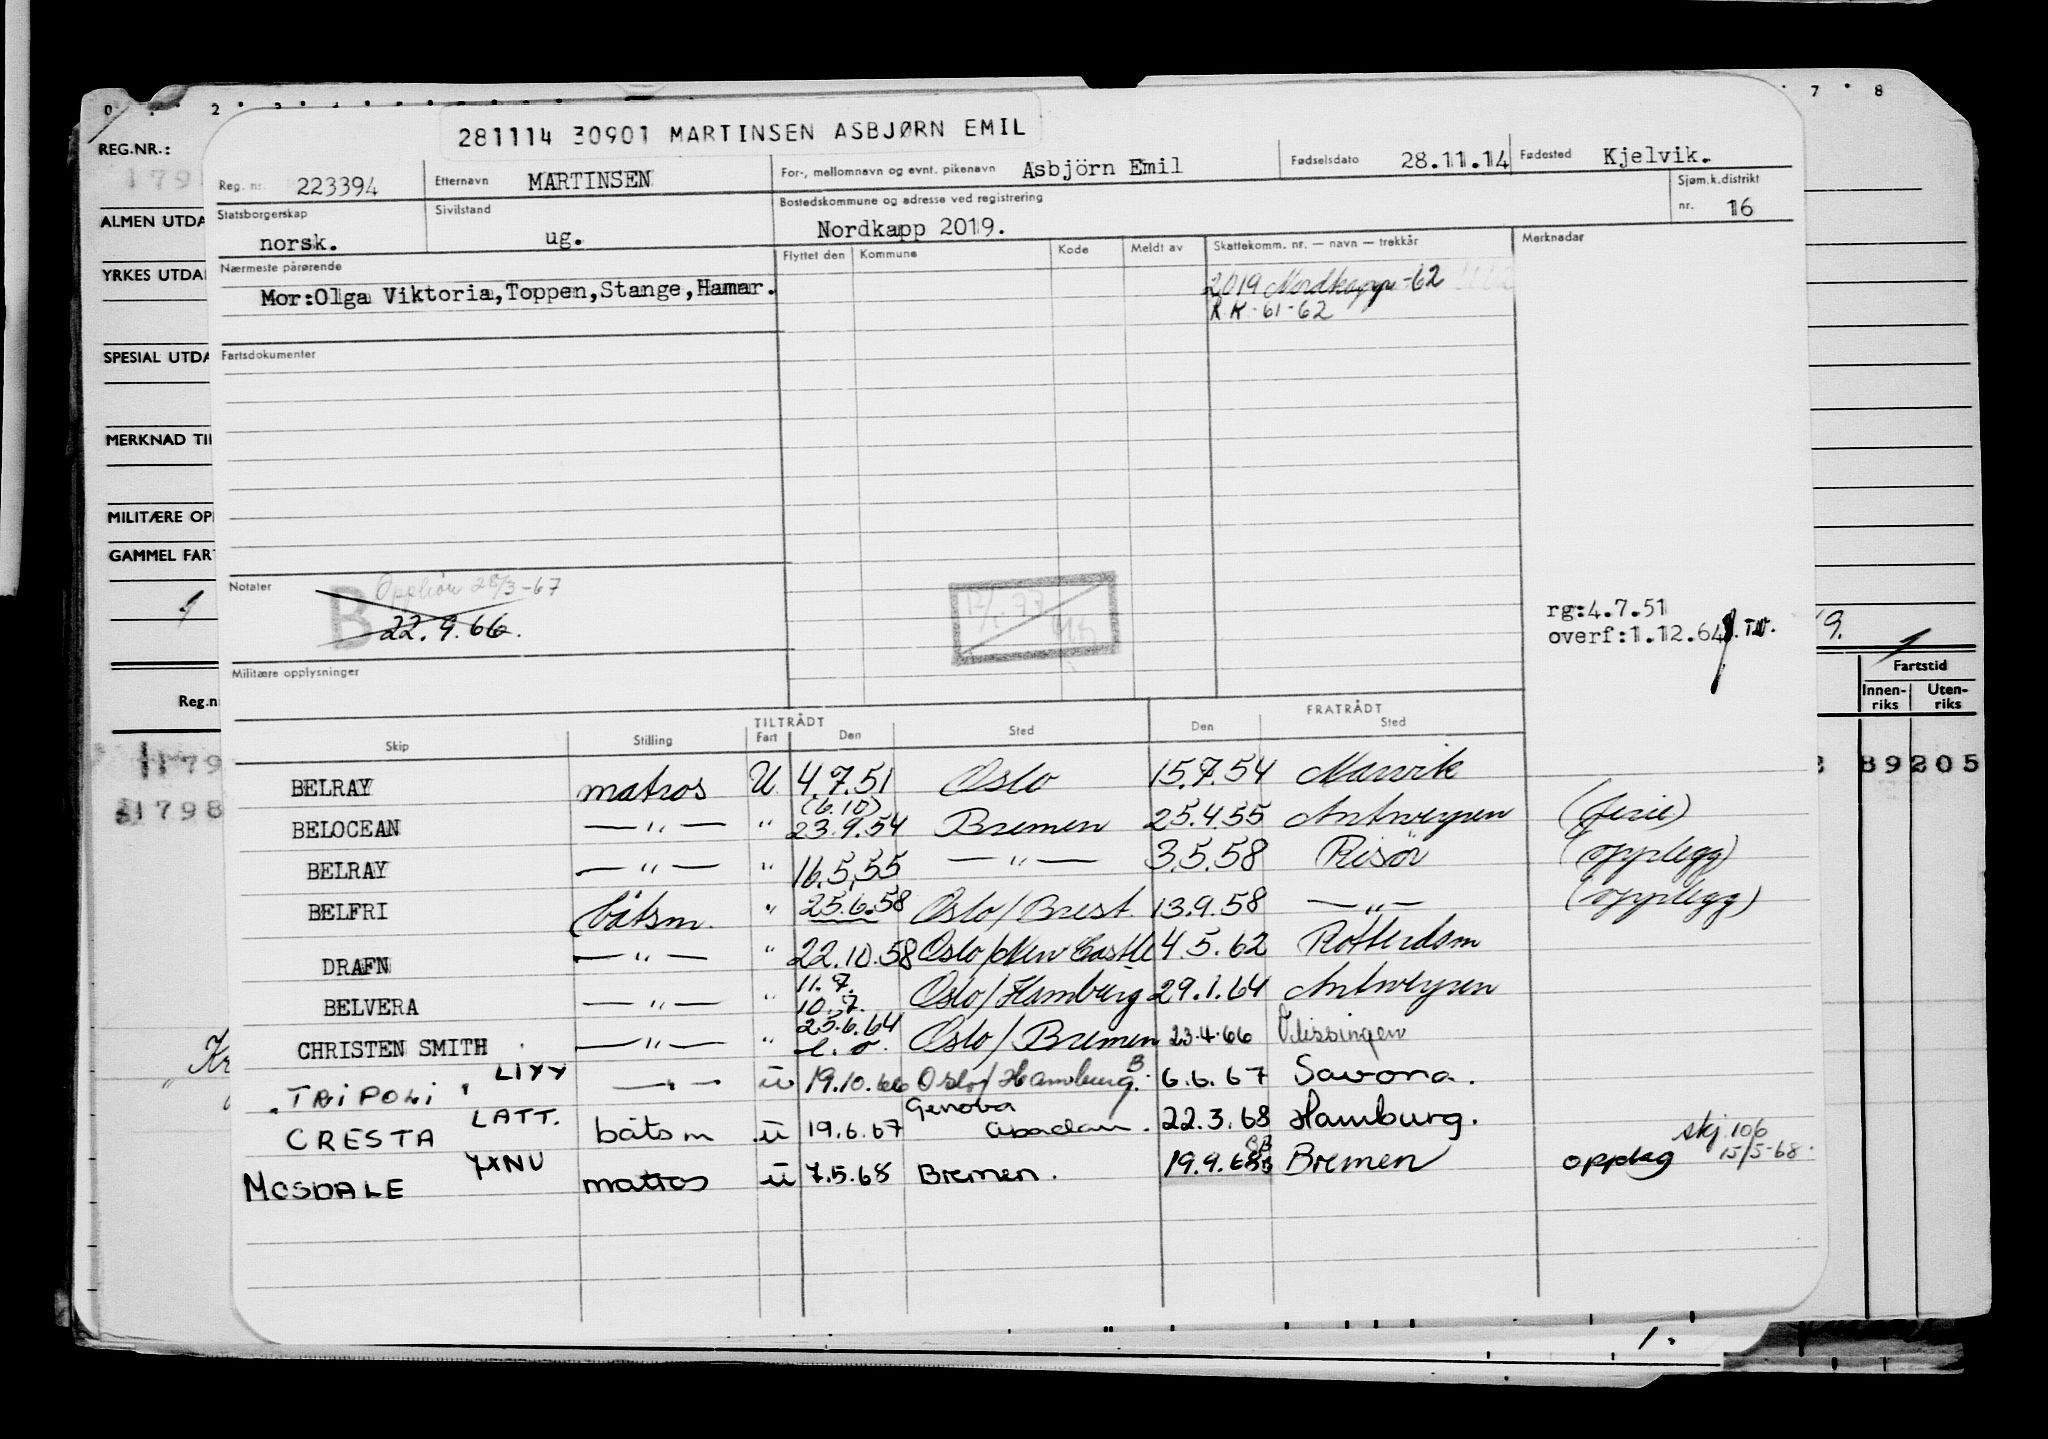 0 2 3 7 8
281114 30901 MARTINSEN ASBJØRN EMIL
REG.NR.:
Reg. nr. 223394 Etternavn MARTINSEN For-, mellomnavn og evnt. pikenavn Asbjörn Emil Fødselsdato 28.11.14 Fødested Kjelvik.
Statsborgerskap norsk. Sivilstand ug. Bostedskommune og adresse ved registrering Nordkapp 2019. Sjøm.k.distrikt nr. 16
ALMEN UTDA
Nærmeste pårørende Flyttet den Kommune Kode Meldt av Skattekomm. nr. — navn — trekkår Merknader
YRKES UTDA
Mor:Olga Viktoria,Toppen,Stange,Hamar. 2019 Nordkapp-62
R.K-61-62
SPESIAL UTDA
Fartsdokumenter
MERKNAD TIL
MILITÆRE OP
GAMMEL FAR
Notater B Opphör 28/3-67
22.9.66.
rg:4.7.51
overf:1.12.64 T.W.
Militære opplysninger
Fartstid
Innen-riks Uten-riks
Reg.n
TILTRÅDT FRATRÅDT
Skip Stilling Fart Den Sted Den Sted
BELRAY matros U 4.7.51 Oslo 15.7.54 Narvik
89205
BELOCEAN —"— " (6.10) 23.9.54 Bremen 25.4.55 Antwerpen (ferie)
BELRAY —"— " 16.5.55 —"— 3.5.58 Risör (opplegg)
BELFRI (båtsm. " 25.6.58 Oslo/Brest 13.9.58 —"— (opplegg)
DRAFN —"— " 22.10.58 Oslo/New Castle 4.5.62 Rotterdam
BELVERA —"— " 11.7. 10.7. Oslo/Hamburg 29.1.64 Antwerpen
CHRISTEN SMITH —"— " 25.6.64 Oslo/Bremen 23.4.66 Vlissingen
TRIPOLI LIYY —"— ü 19.10.66 Oslo/Hamburg B. 6.6.67 Savona.
CRESTA LATT. båtsm ü 19.6.67 Genova Abadan. 22.3.68 Hamburg.
MOSDALE JXNU matros ü 7.5.68 Bremen. 19.9.68 Bremen opplag skj 106 15/5-68.
1.